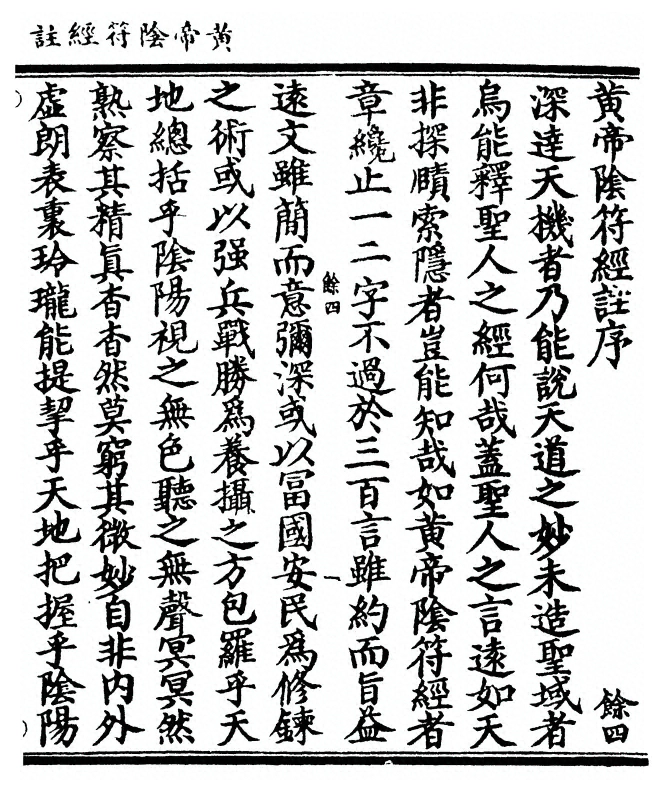 黃帝陰符經註
黃帝陰符經註序
餘四
深達天機者乃能說天道之妙未造聖域者
烏能釋聖人之經何哉蓋聖人之言遠如天
非探賾索隱者豈能知哉如黃帝陰符經者
章纔止一二字不過於三百言雖約而旨益
餘四
一
遠文雖簡而意彌深或以富國安民為修鍊
之術或以强兵戰勝為養攝之方包羅乎天
地總括乎陰陽視之無色聽之無聲冥冥然
熟察其精真杳杳然莫窮其微妙自非內外
虛朗表裏玲瓏能提挈乎天地把握乎陰陽